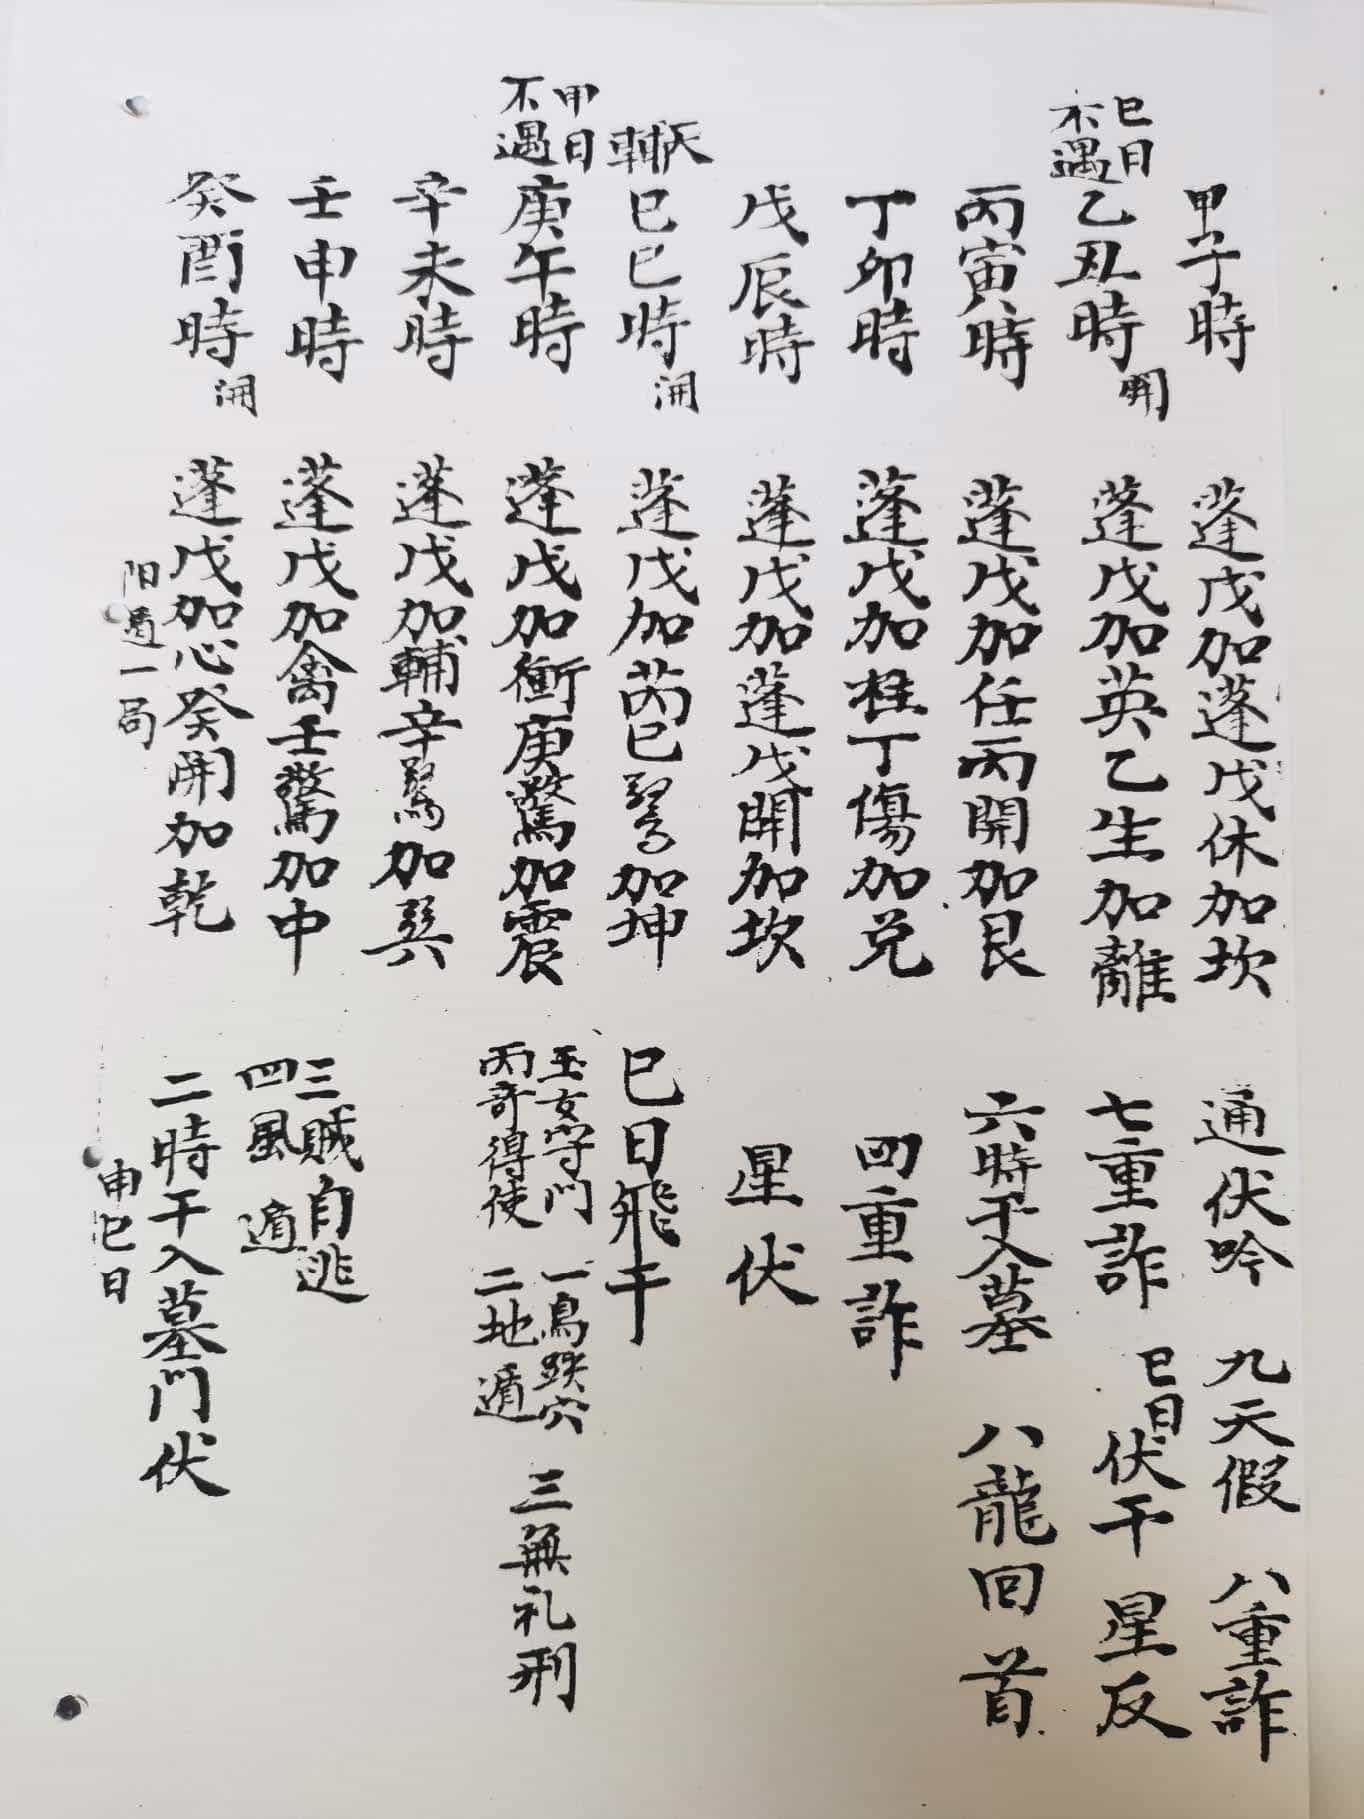 甲子時 蓬戊加蓬戊休加坎 通伏吟 九天假 八重詐
巳日
不遇
乙丑時 開 蓬戊加英乙生加離 七重詐 巳日 伏干 星反
丙寅時 蓬戊加任丙開加艮 六時干入墓 八龍回首
丁卯時 蓬戊加柱丁傷加兌 四重詐
戊辰時 蓬戊加蓬戊開加坎 星伏
天
輔
巳巳時 開 蓬戊加芮巳驚加坤 巳日飛干
甲日
不遇
庚午時 蓬戊加衝庚驚加震
玉女守門 一鳥跌穴
丙奇得使 二地遁
三無礼刑
辛未時 蓬戊加輔辛驚加巽
壬申時 蓬戊加禽壬驚加中
三賊自逃
四風遁
癸酉時 開 蓬戊加心癸開加乾 二時干入墓門伏
阳遁一局
申巳日